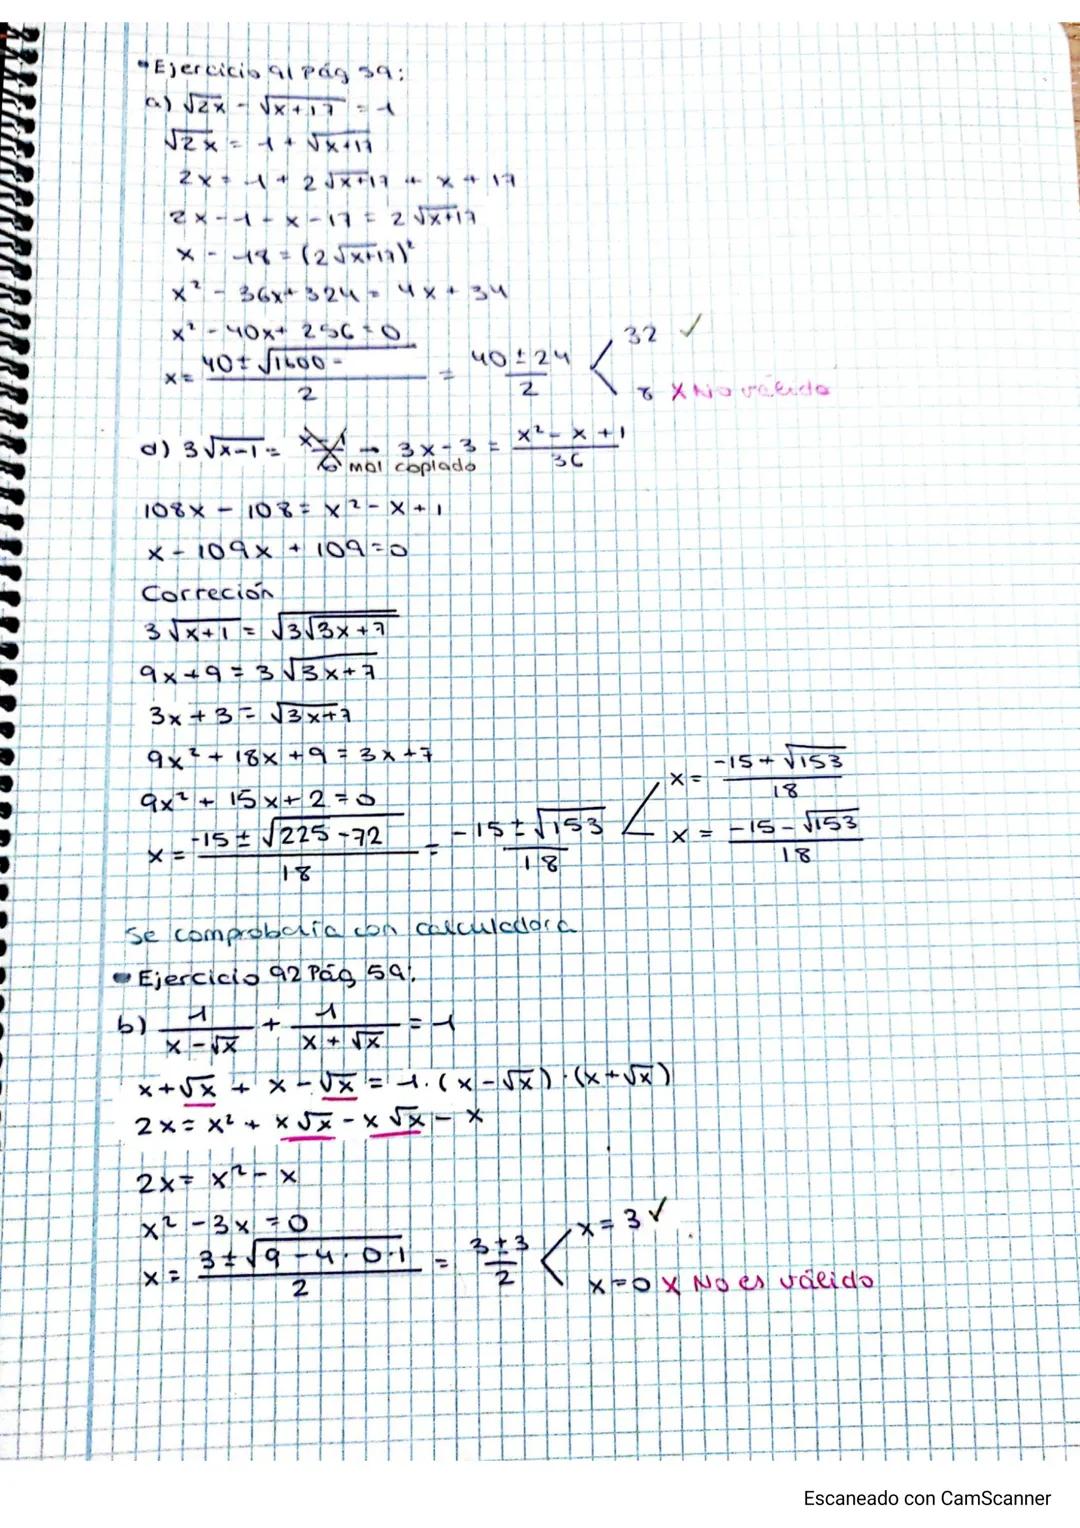 • Ejercicio 91 Pág 59:
a) √2x - √x+17 = 1
√2x = 1 + √x+17
2x = 1 + 2√x+17 + x + 17
2x - 1 - x - 17 = 2√x+17
x - 18 = (2√x+17)²
x² - 36x + 324 = 4x + 34
x² - 40x + 256 = 0
x = 40 ± √1600 - / 2 = 40 ± 24 / 2 < 32 ✓
8 x No válido
d) 3√x-1 = → 3x - 3 = x² - x + 1 / 36
mal copiado
108x - 108 = x² - x + 1
x - 109x + 109 = 0
Correción
3√x+1 = √3√3x+7
9x + 9 = 3√3x+7
3x + 3 = √3x+7
9x² + 18x + 9 = 3x + 7
9x² + 15x + 2 = 0
x = -15 ± √225 - 72 / 18 = -15 ± √153 / 18 < x = -15 + √153 / 18
x = -15 - √153 / 18
Se comprobaría con calculadora
• Ejercicio 92 Pág 59:
b) 1 / x - √x + 1 / x + √x = 1
x + √x + x - √x = 1 · (x - √x) · (x + √x)
2x = x² + x√x - x√x - x
2x = x² - x
x² - 3x = 0
x = 3 ± √9 - 4 · 0 · 1 / 2 = 3 ± 3 / 2 < x = 3 ✓
x = 0 x No es válido
Escaneado con CamScanner